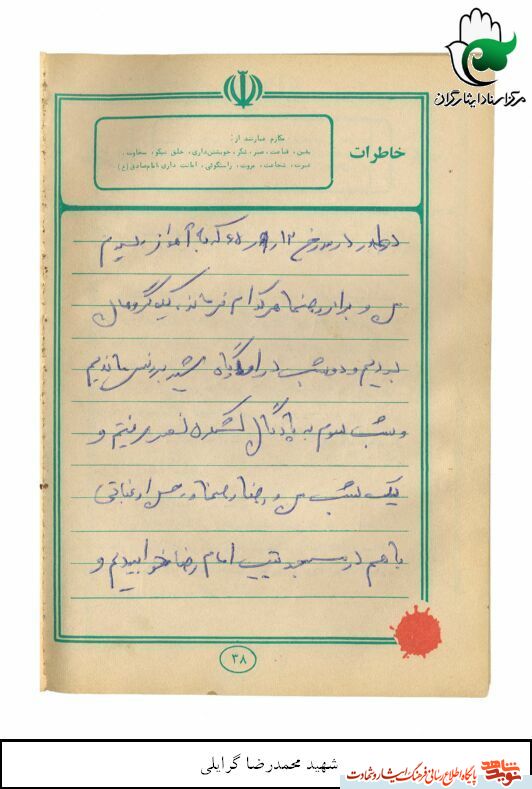 مرکز اسناد ایثارگران
خاطرات
مکارم عبارتند از:
یقین، قناعت، صبر، شکر، خویشتن‌داری، خلق نیکو، سخاوت،
غیرت، شجاعت، مروت، راستگوئی، امانت داری، امام صادق (ع)
در مورخ ۶۵ که به اهواز رسیدیم
من و برادر رضا هرکدام فرمانده یک گروهان
بودیم و دو شب در شهید ماندیم
و شب سوم به پادگان لشکر رفتیم و
یک شب من و رضا و حسن
با هم در مسجد تیپ امام رضا خوابیدیم و
۳۸
شهید محمدرضا گرایلی
نوید شاهد
پایگاه اطلاع رسانی فرهنگ ایثار و شهادت